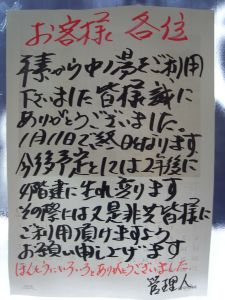 お客様 各位
から中ノ湯をご利用
下さいました皆様誠に
ありがとうございました。
1月11日で終日なります
今後予定としては2年後に
4階建に生れ変ります
その際には又是非皆様に
ご利用頂けますよう
お願い申し上げます
ほんとうにいろいろとありがとうございました。
管理人